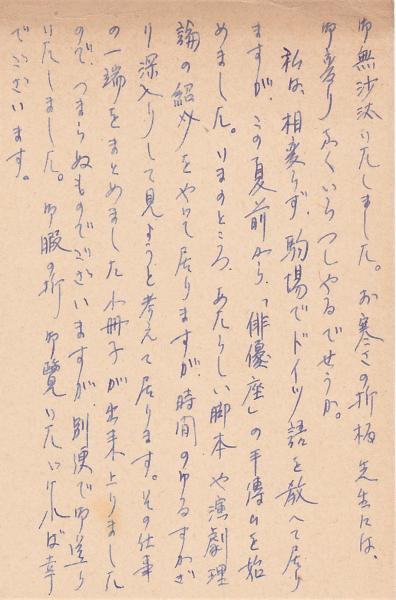 御無沙汰いたしました。お寒さの折柄 先生には、
御変りなくいらつしやるでせうか。
私は、相変らず、駒場でドイツ語を教へて居り
ますが、この夏前から、「俳優座」の手傳ひを始
めました。いまのところ、あたらしい脚本や演劇理
論の紹介をやつて居りますが、時間のゆるすかぎ
り深入りして見ようと考えて居ります。その仕事
の一端をまとめました小冊子が出来上りました
ので、つまらぬものでございますが、別便で御送り
いたしました。御暇の折 御覽いたゞければ幸
でございます。